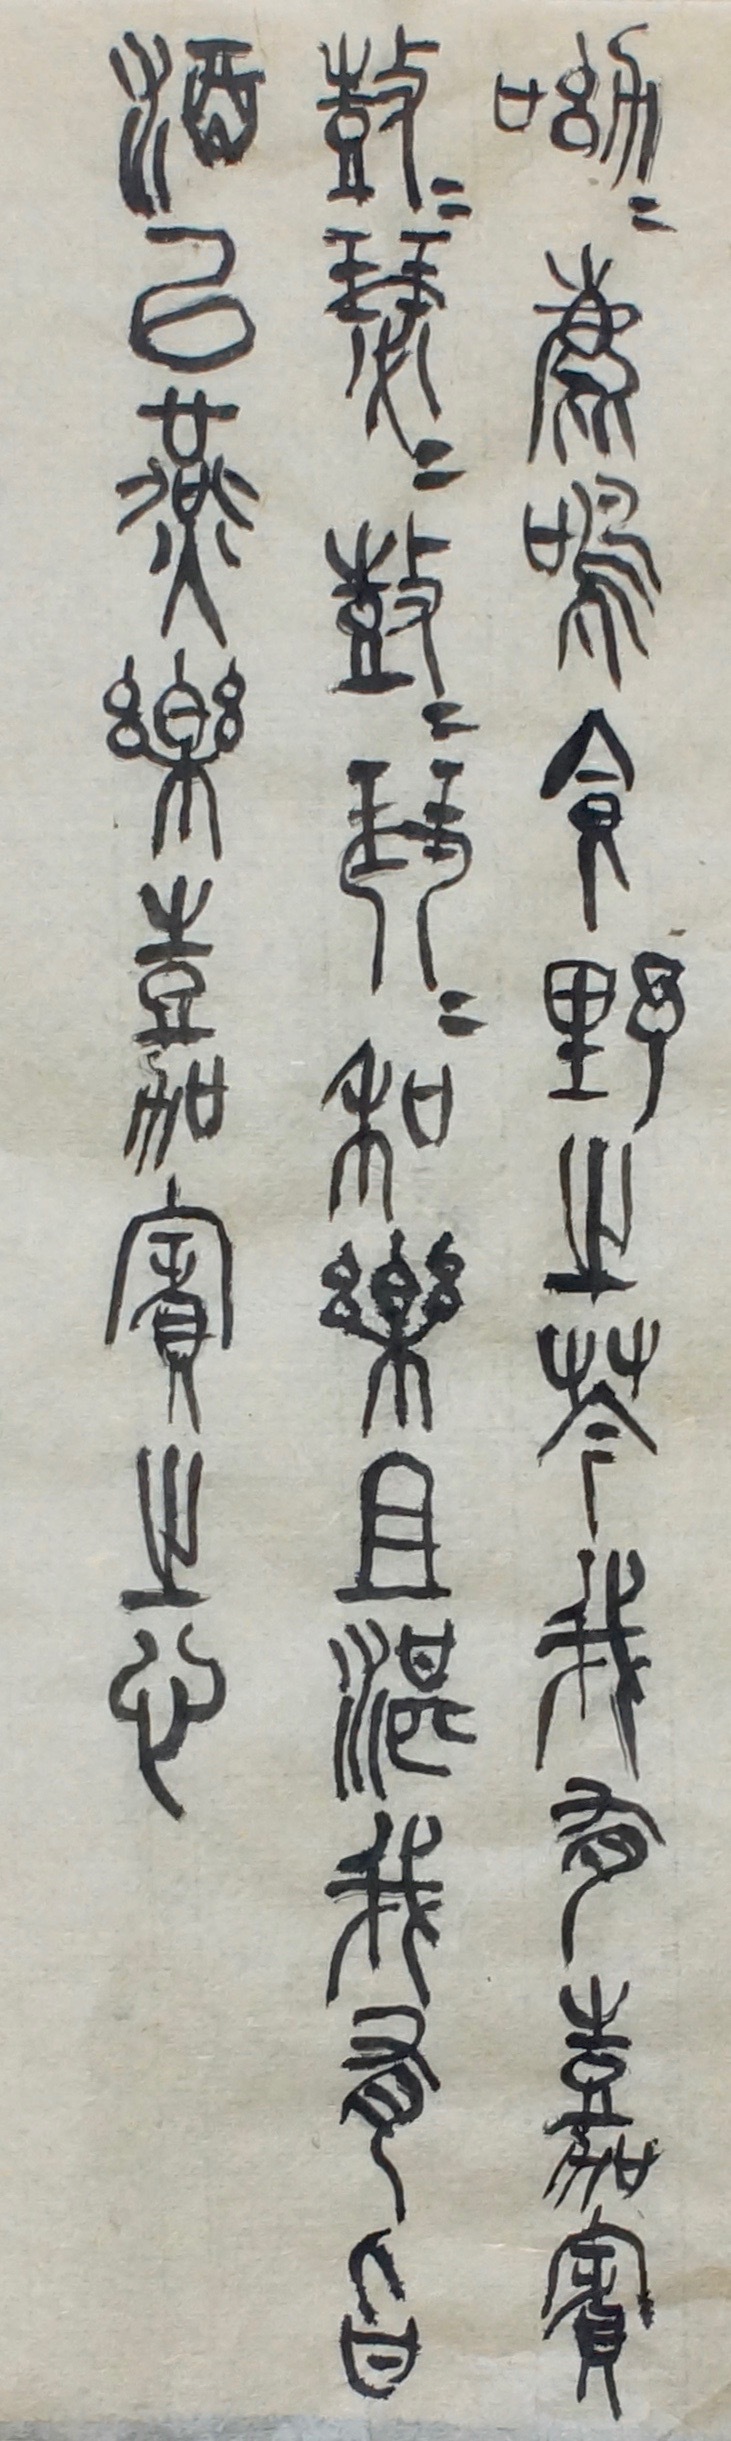 呦〻鹿鳴食野之芩我有嘉賓
鼓〻瑟〻鼓〻琴〻和樂且湛我有旨
酒以燕樂嘉賓之心